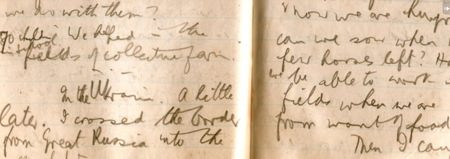 we do with them?
We helped in the
fields of collective farm.
In the Ukraine. A little
later. I crossed the border
from Great Russia into the
now we are hungry
can we sow when
few horses left? H
we be able to work
fields when we are
from want of food
Then I cam